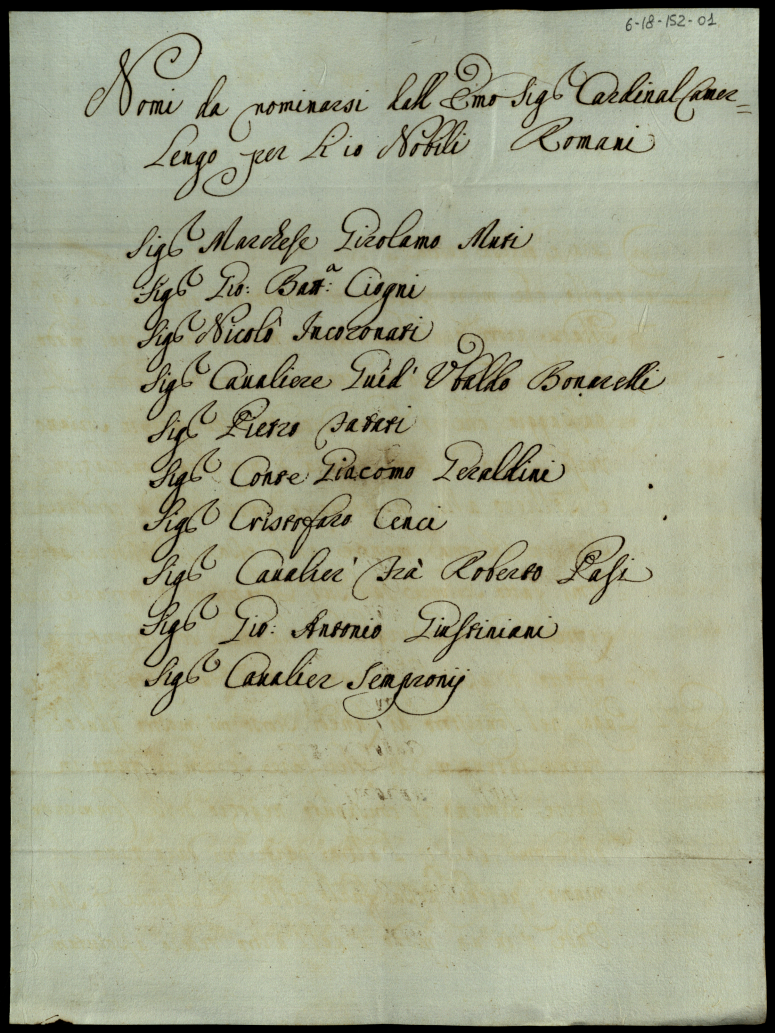 6-18-152-01
Nomi da nominarsi dall Emo Sigr Cardinal Camer=
lengo per li 10 Nobili Romani
Sigr Marchese Girolamo Muti
Sigr Gio: Battª: Ciogni
Sigr Nicolò Incoronati
Sigr Caualiere Guid' Vbaldo Bonarelli
Sigr Pietro
Sigr Conte Giacomo Geraldini
Sigr Cristofaro Cenci
Sigr Caualier' frà Roberto Pasi
Sigr Gio: Antonio Giustiniani
Sigr Caualier Sempronij